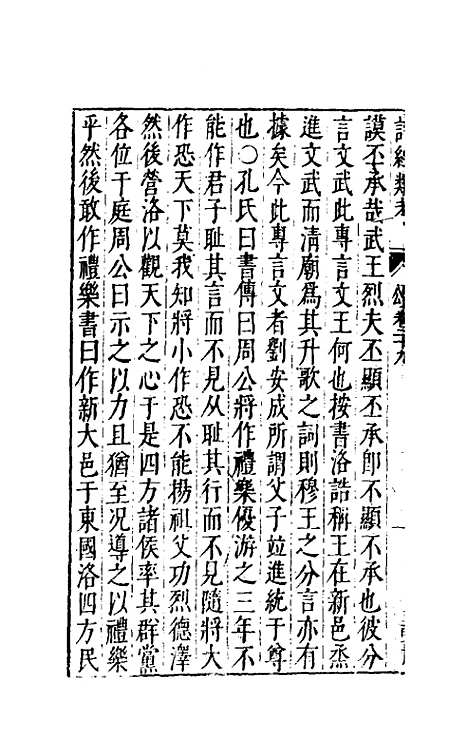 詩經類考
頌卷二十九
謨丕承哉武王烈夫丕顯丕承卽不顯不承也彼分
言文武此專言文王何也按書洛誥稱王在新邑烝
進文武而淸廟爲其升歌之詞則穆王之分言亦有
據矣今此專言文者劉安成所謂父子竝進統于尊
也○孔氏曰書傳曰周公將作禮樂優游之三年不
能作君子耻其言而不見从耻其行而不見隨將大
作恐天下莫我知將小作恐不能揚祖父功烈德澤
然後營洛以觀天下之心于是四方諸侯率其群黨
各位于庭周公曰示之以力且猶至况導之以禮樂
乎然後敢作禮樂書曰作新大邑于東國洛四方民